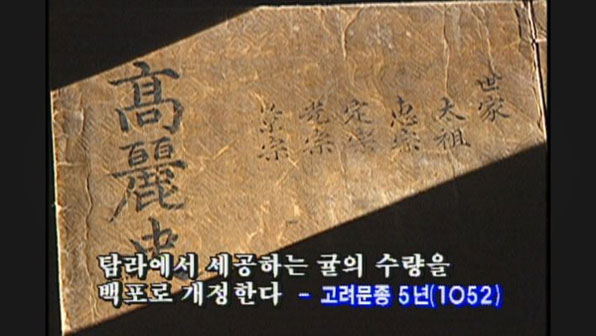 高麗史
世家
太祖
惠宗
定宗
光宗
景宗
탐라에서 세공하는 귤의 수량을
백포로 개정한다 - 고려문종 5년(1052)